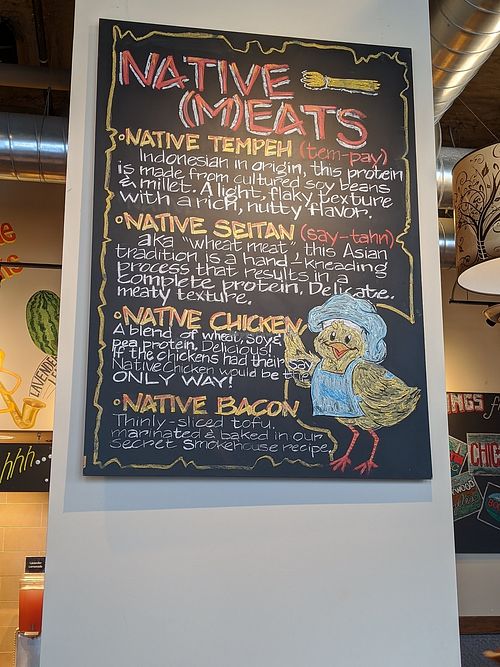 NATIVE
(M)EATS
•NATIVE TEMPEH (tem-pay)
Indonesian in origin, this protein
is made from cultured soy beans
& millet. A light, flaky texture
with a rich, nutty flavor.
•NATIVE SEITAN (say-tahn)
aka "wheat meat," this Asian
tradition is a hand-kneading
process that results in a
complete protein. Delicate,
meaty texture.
•NATIVE CHICKEN
A blend of wheat, soy &
pea protein. Delicious!
If the chickens had their say
Native Chicken would be t
ONLY WAY!
•NATIVE BACON
Thinly-sliced tofu,
marinated & baked in our
secret smokehouse recipe
LAVENDER
hhh...
INGS
CHIC